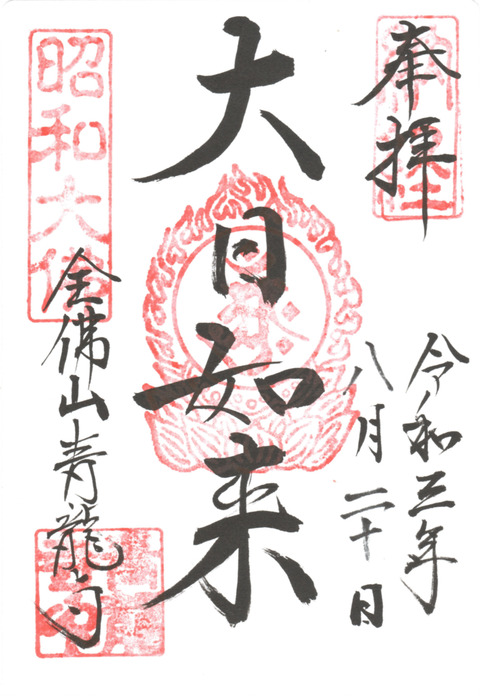 奉拝
令和三年
八月二十日
大日如来
昭和大佛
全佛山青龍寺